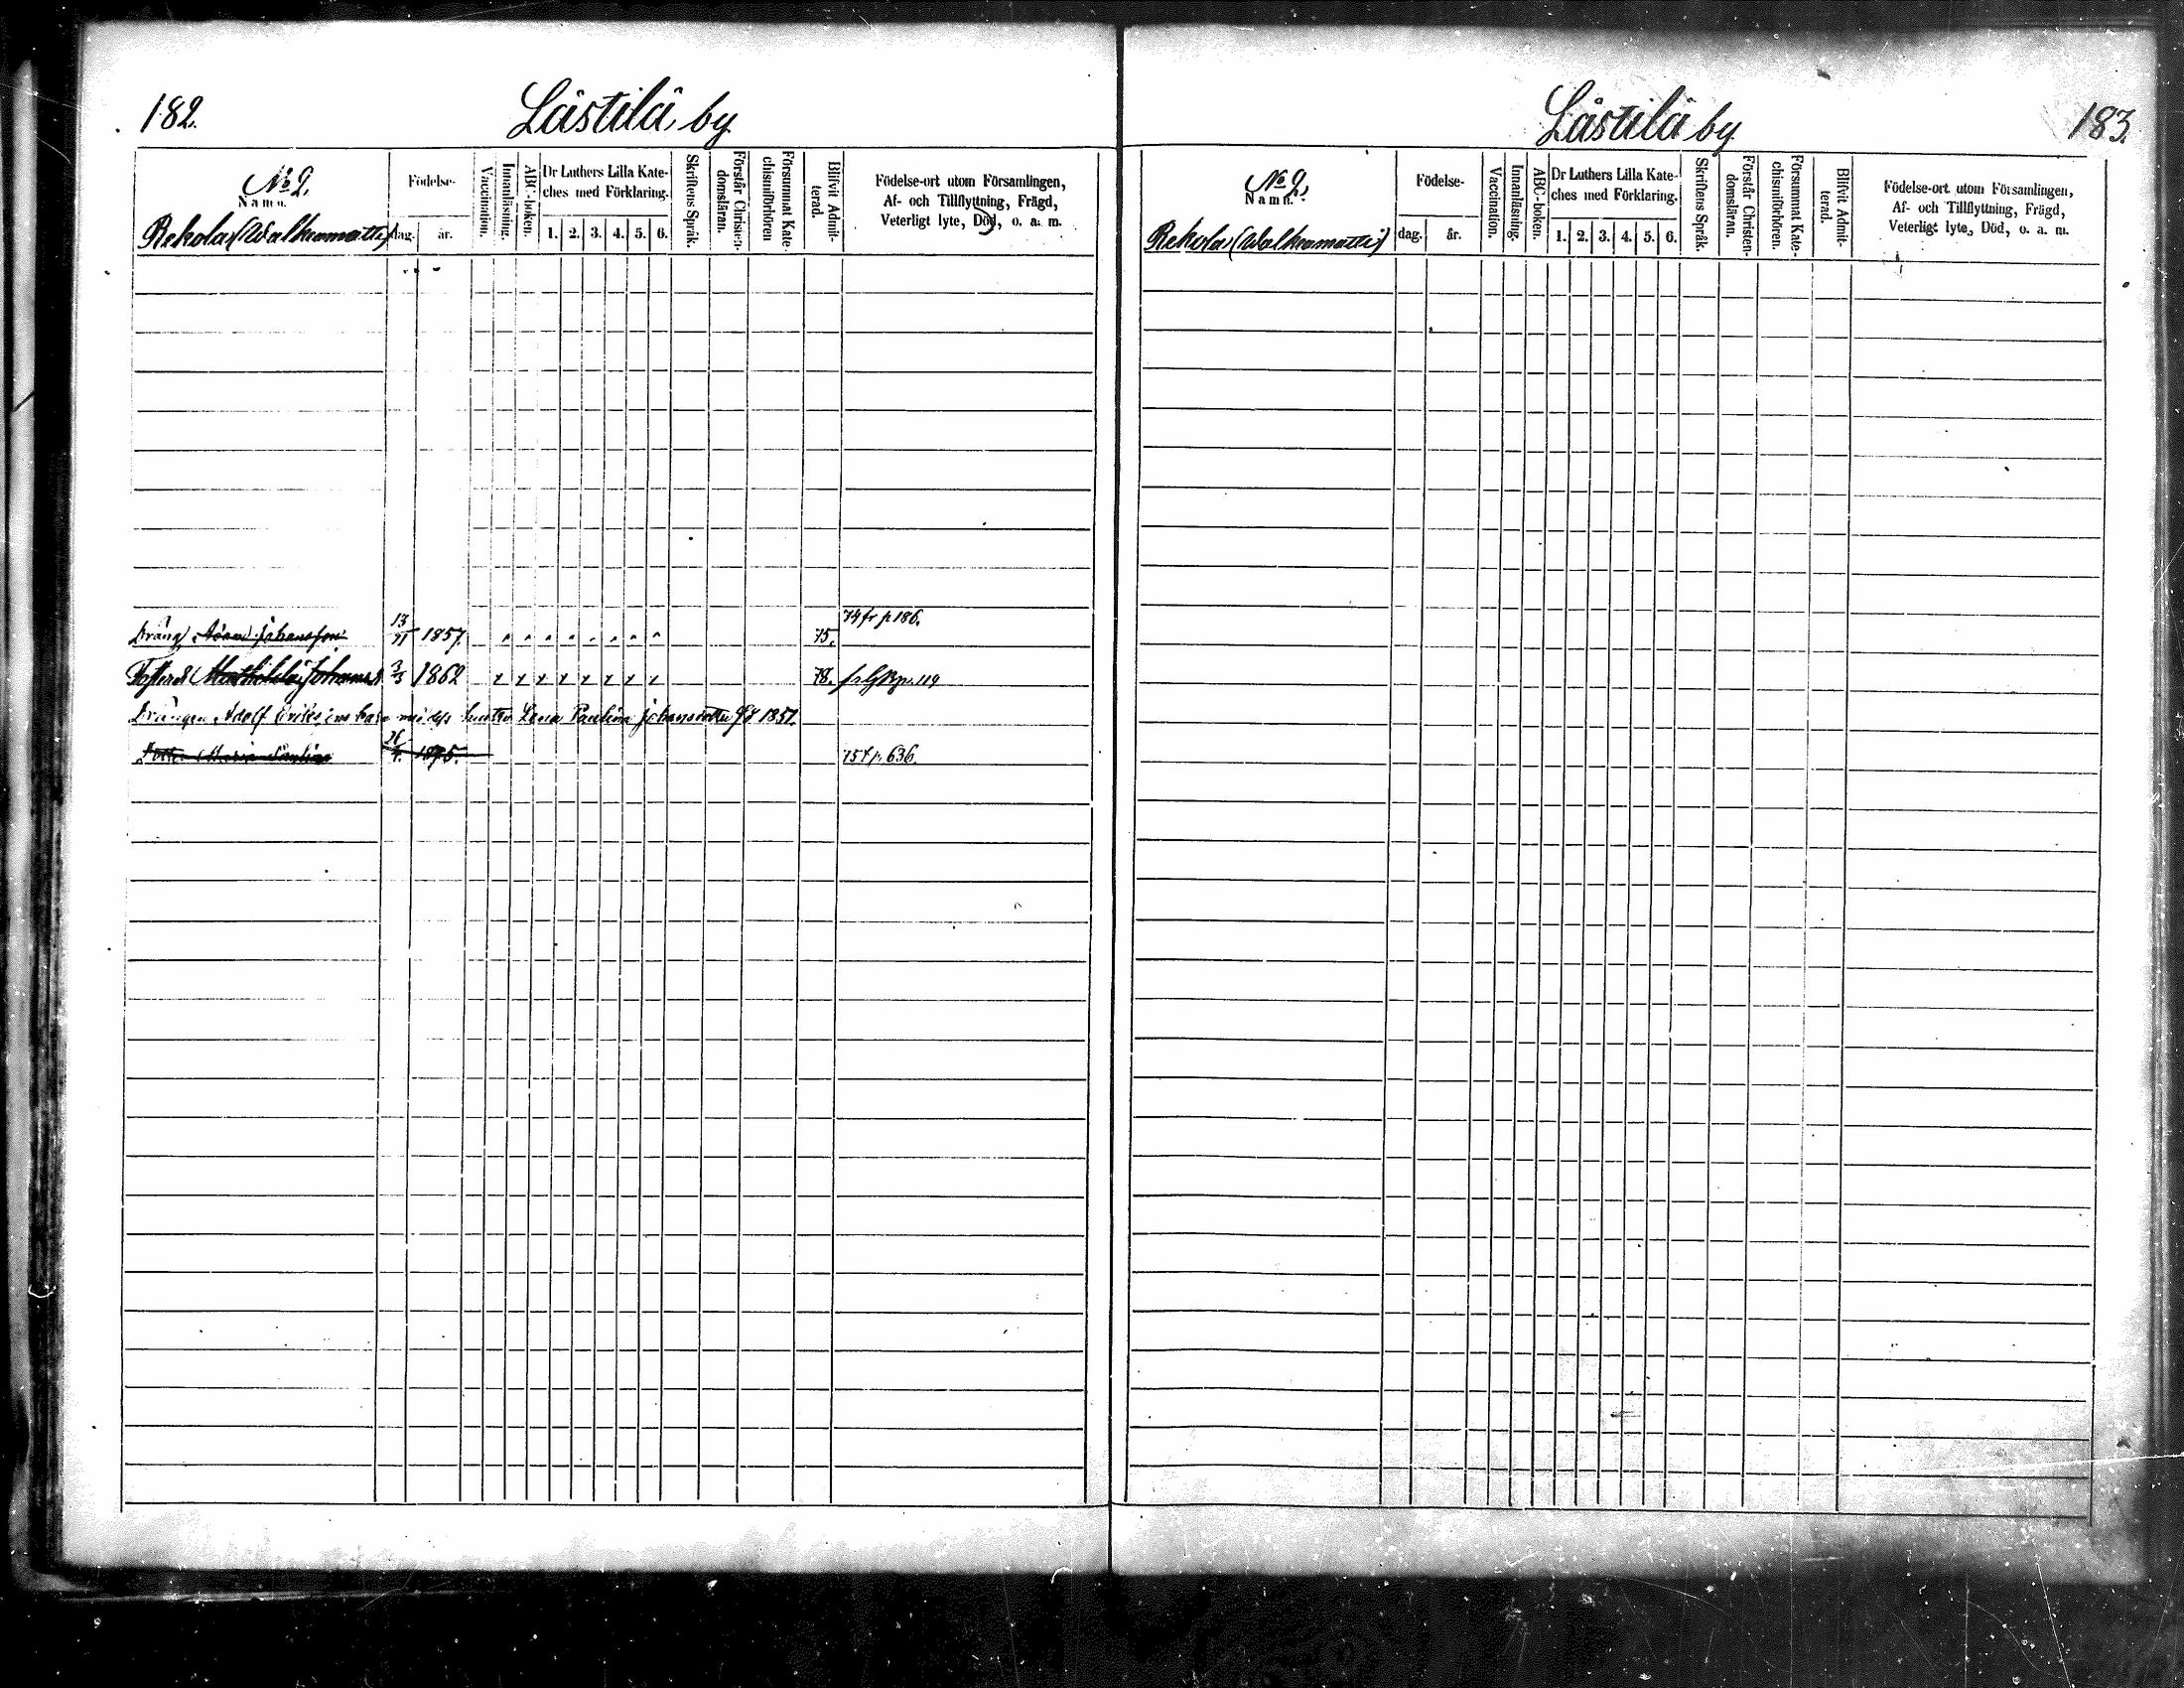 182.
Lástilä by
No 2.
Namn.
Rekola (Walkeamatti)
Födelse-
dag.
år.
Vaccination.
Innanläsning.
ABC-boken.
Dr Luthers Lilla Kate-
ches med Förklaring.
1. 2. 3. 4. 5. 6.
Skriftens Språk.
Förstår Christen-
domsläran.
Försummat Kate-
chismiförhören
Blifvit Admit-
terad.
Födelse-ort utom Församlingen,
Af- och Tillflyttning, Frägd,
Veterligt lyte, Död, o. a. m.
Dräng Johansson 13/11 1857. 75. 74 fr p 186.
Mathilda Johansd. 3/3 1862 78. fr GBp. 119
Drängen Adolf Eriksson hustru Lena Paulina Johansdotter 1851.
Dotter Maria Paulina 26/4. 1875. 75 t p. 636.
Lástilä by
183.
No 2.
Namn.
Rekola (Walkeamatti)
Födelse-
dag.
år.
Vaccination.
Innanläsning.
ABC-boken.
Dr Luthers Lilla Kate-
ches med Förklaring.
1. 2. 3. 4. 5. 6.
Skriftens Språk.
Förstår Christen-
domsläran.
Försummat Kate-
chismiförhören.
Blifvit Admit-
terad.
Födelse-ort utom Församlingen,
Af- och Tillflyttning, Frägd,
Veterligt lyte, Död, o. a. m.